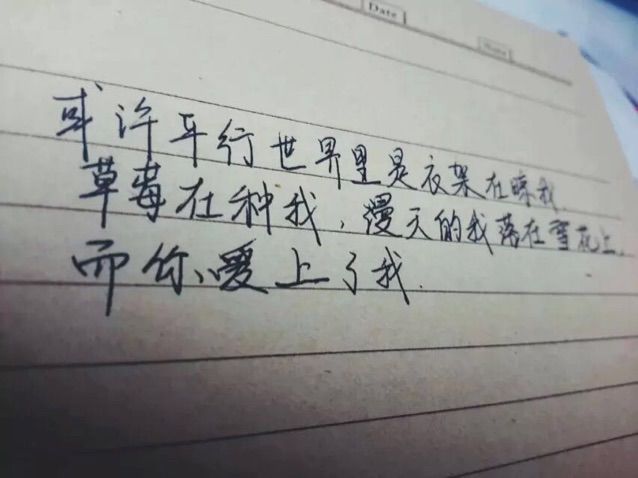 Date
或许平行世界里是衣架在晾我.
草莓在种我，漫天的我落在雪花上.
而你、爱上了我.